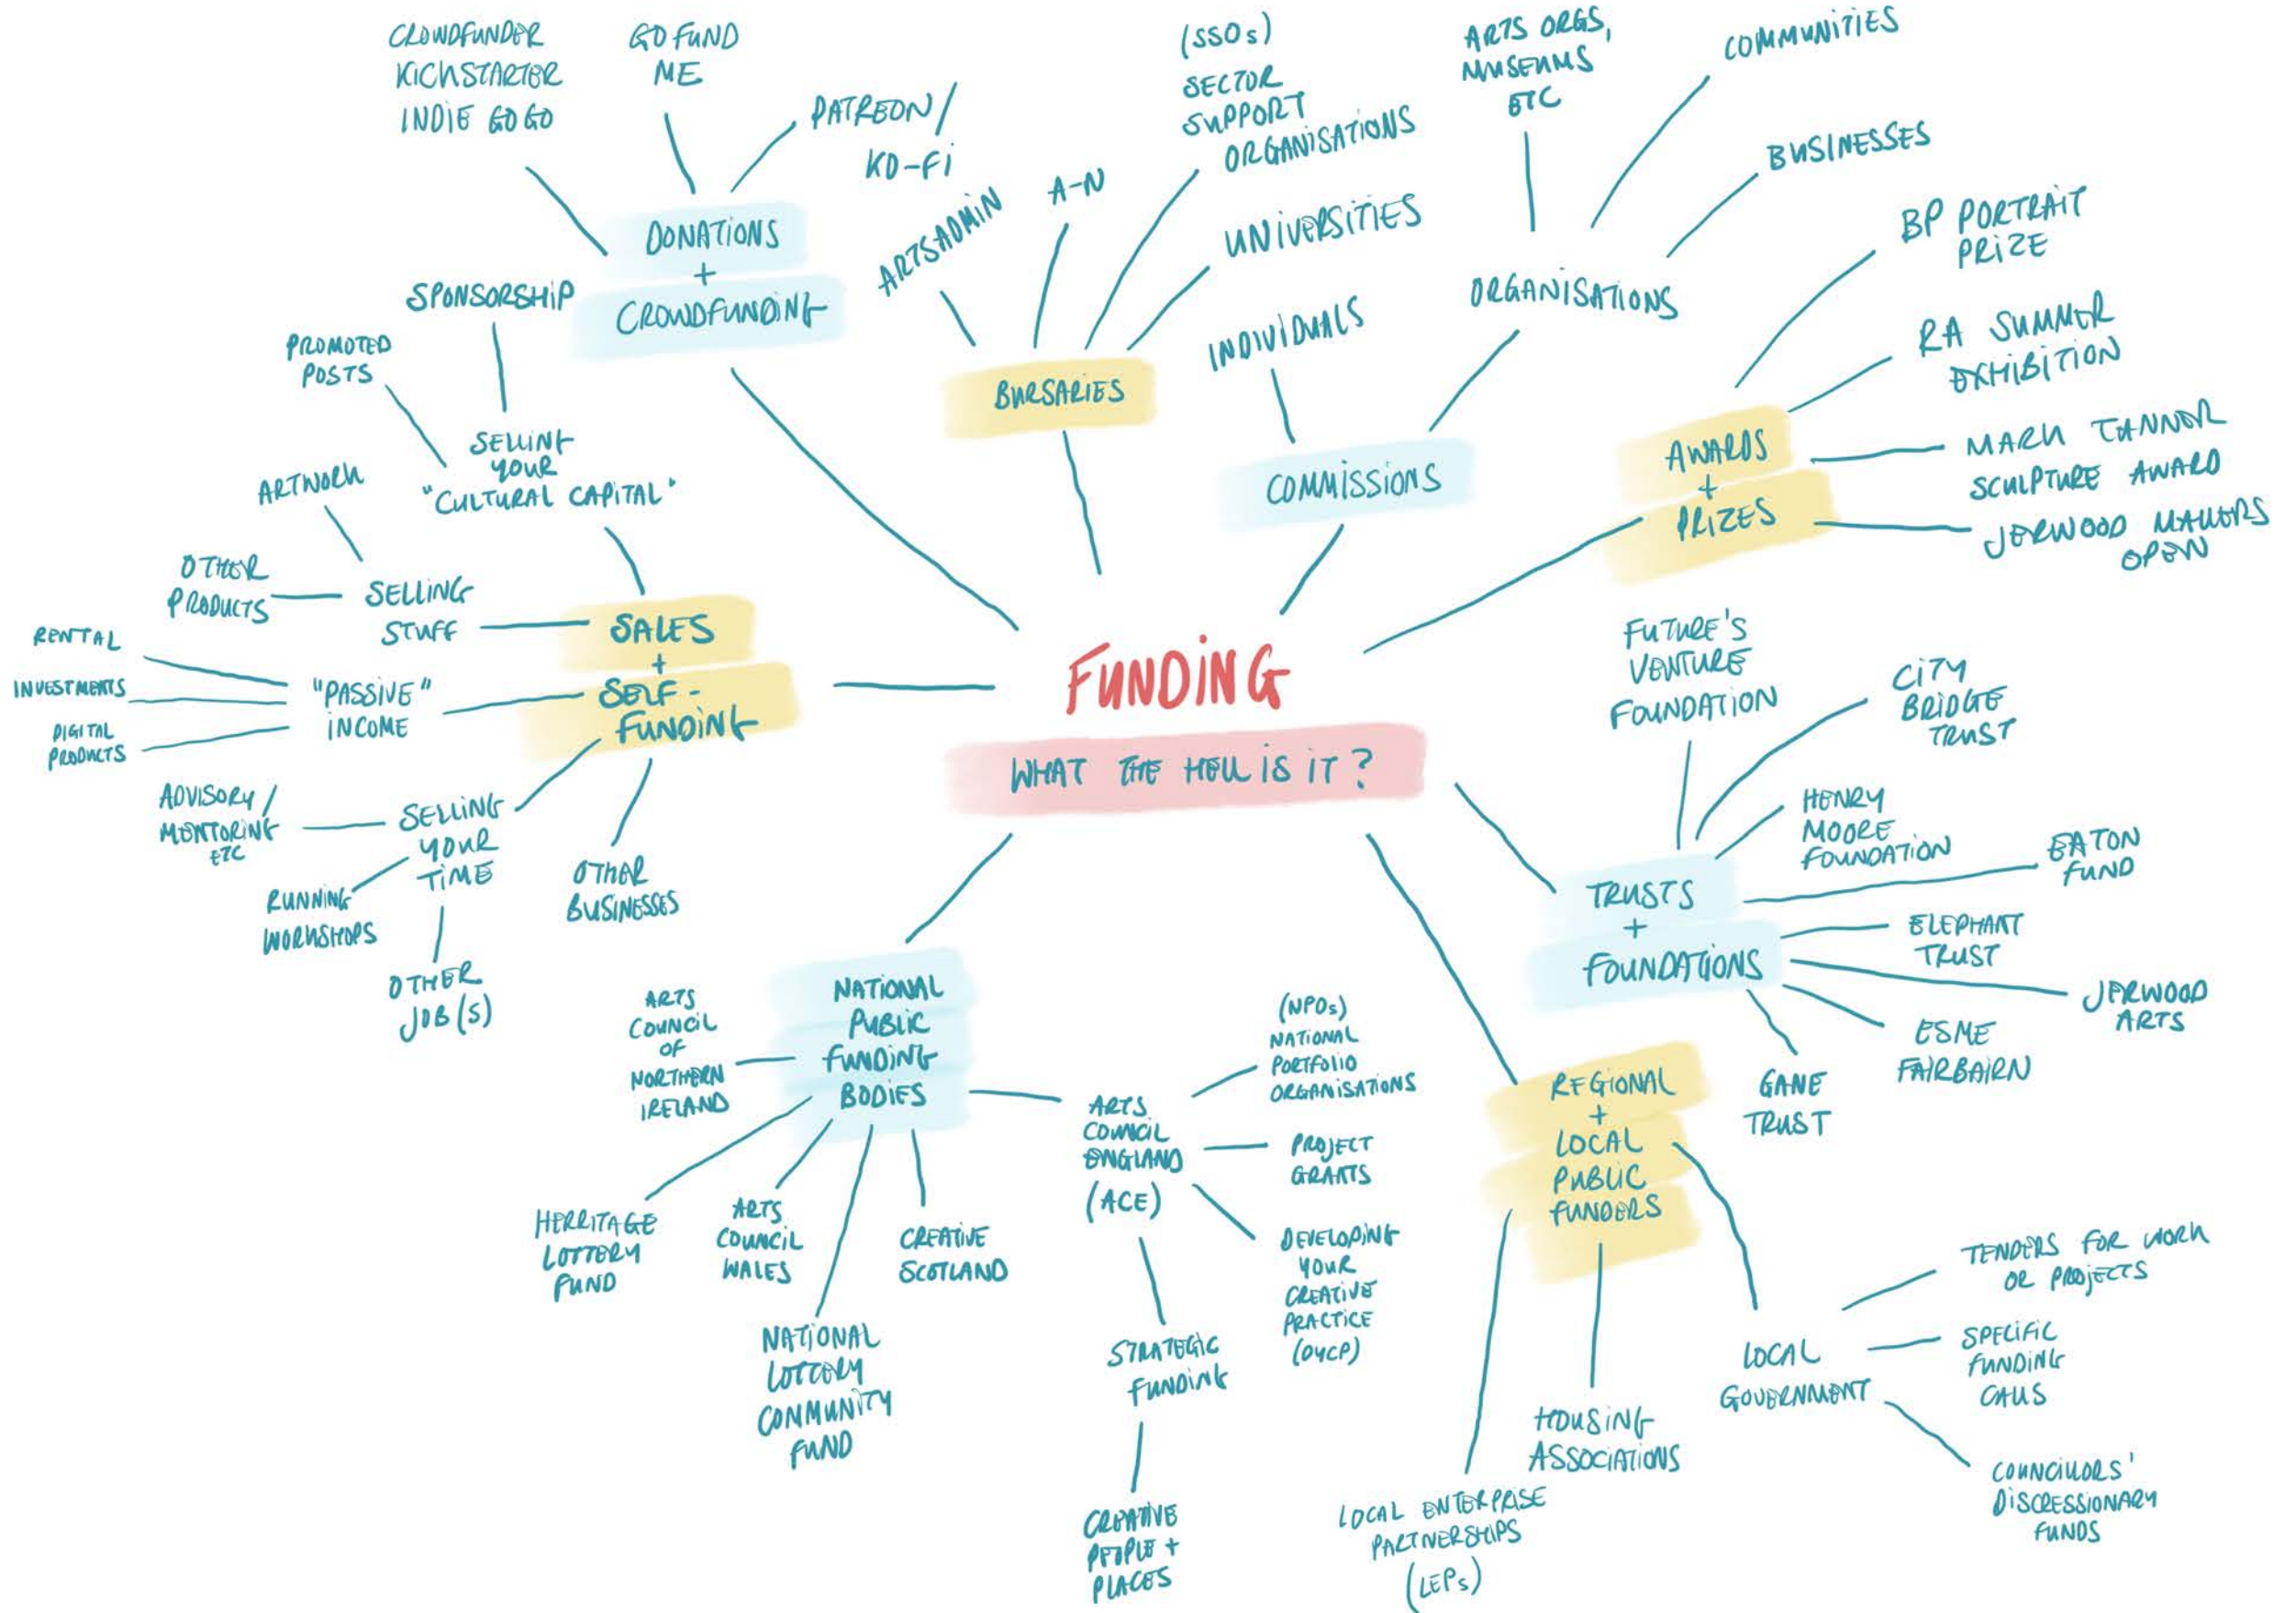 FUNDING
WHAT THE HELL IS IT?
DONATIONS
+
CROWDFUNDING
CROWDFUNDER
KICKSTARTER
INDIE GO GO
GO FUND
ME
PATREON /
KO-Fi
BURSARIES
ARTSADMIN
A-N
(SSOs)
SECTOR
SUPPORT
ORGANISATIONS
UNIVERSITIES
COMMISSIONS
INDIVIDUALS
ORGANISATIONS
ARTS ORGS,
MUSEUMS
ETC
COMMUNITIES
BUSINESSES
AWARDS
+
PRIZES
BP PORTRAIT
PRIZE
RA SUMMER
EXHIBITION
MARK TANNER
SCULPTURE AWARD
JERWOOD MAKERS
OPEN
TRUSTS
+
FOUNDATIONS
FUTURE'S
VENTURE
FOUNDATION
CITY
BRIDGE
TRUST
HENRY
MOORE
FOUNDATION
EATON
FUND
ELEPHANT
TRUST
JERWOOD
ARTS
ESME
FAIRBAIRN
GANE
TRUST
REGIONAL
+
LOCAL
PUBLIC
FUNDERS
LOCAL
GOVERNMENT
TENDERS FOR WORK
OR PROJECTS
SPECIFIC
FUNDING
CALLS
COUNCILLORS'
DISCRESSIONARY
FUNDS
HOUSING
ASSOCIATIONS
LOCAL ENTERPRISE
PARTNERSHIPS
(LEPs)
NATIONAL
PUBLIC
FUNDING
BODIES
ARTS
COUNCIL
OF
NORTHERN
IRELAND
HERRITAGE
LOTTERY
FUND
ARTS
COUNCIL
WALES
NATIONAL
LOTTERY
COMMUNITY
FUND
CREATIVE
SCOTLAND
ARTS
COUNCIL
ENGLAND
(ACE)
(NPOs)
NATIONAL
PORTFOLIO
ORGANISATIONS
PROJECT
GRANTS
DEVELOPING
YOUR
CREATIVE
PRACTICE
(DYCP)
STRATEGIC
FUNDING
CREATIVE
PEOPLE +
PLACES
SALES
+
SELF-
FUNDING
SELLING
YOUR
"CULTURAL CAPITAL"
SPONSORSHIP
PROMOTED
POSTS
SELLING
STUFF
ARTWORK
OTHER
PRODUCTS
"PASSIVE"
INCOME
RENTAL
INVESTMENTS
DIGITAL
PRODUCTS
SELLING
YOUR
TIME
ADVISORY /
MENTORING
ETC
RUNNING
WORKSHOPS
OTHER
JOB(S)
OTHER
BUSINESSES